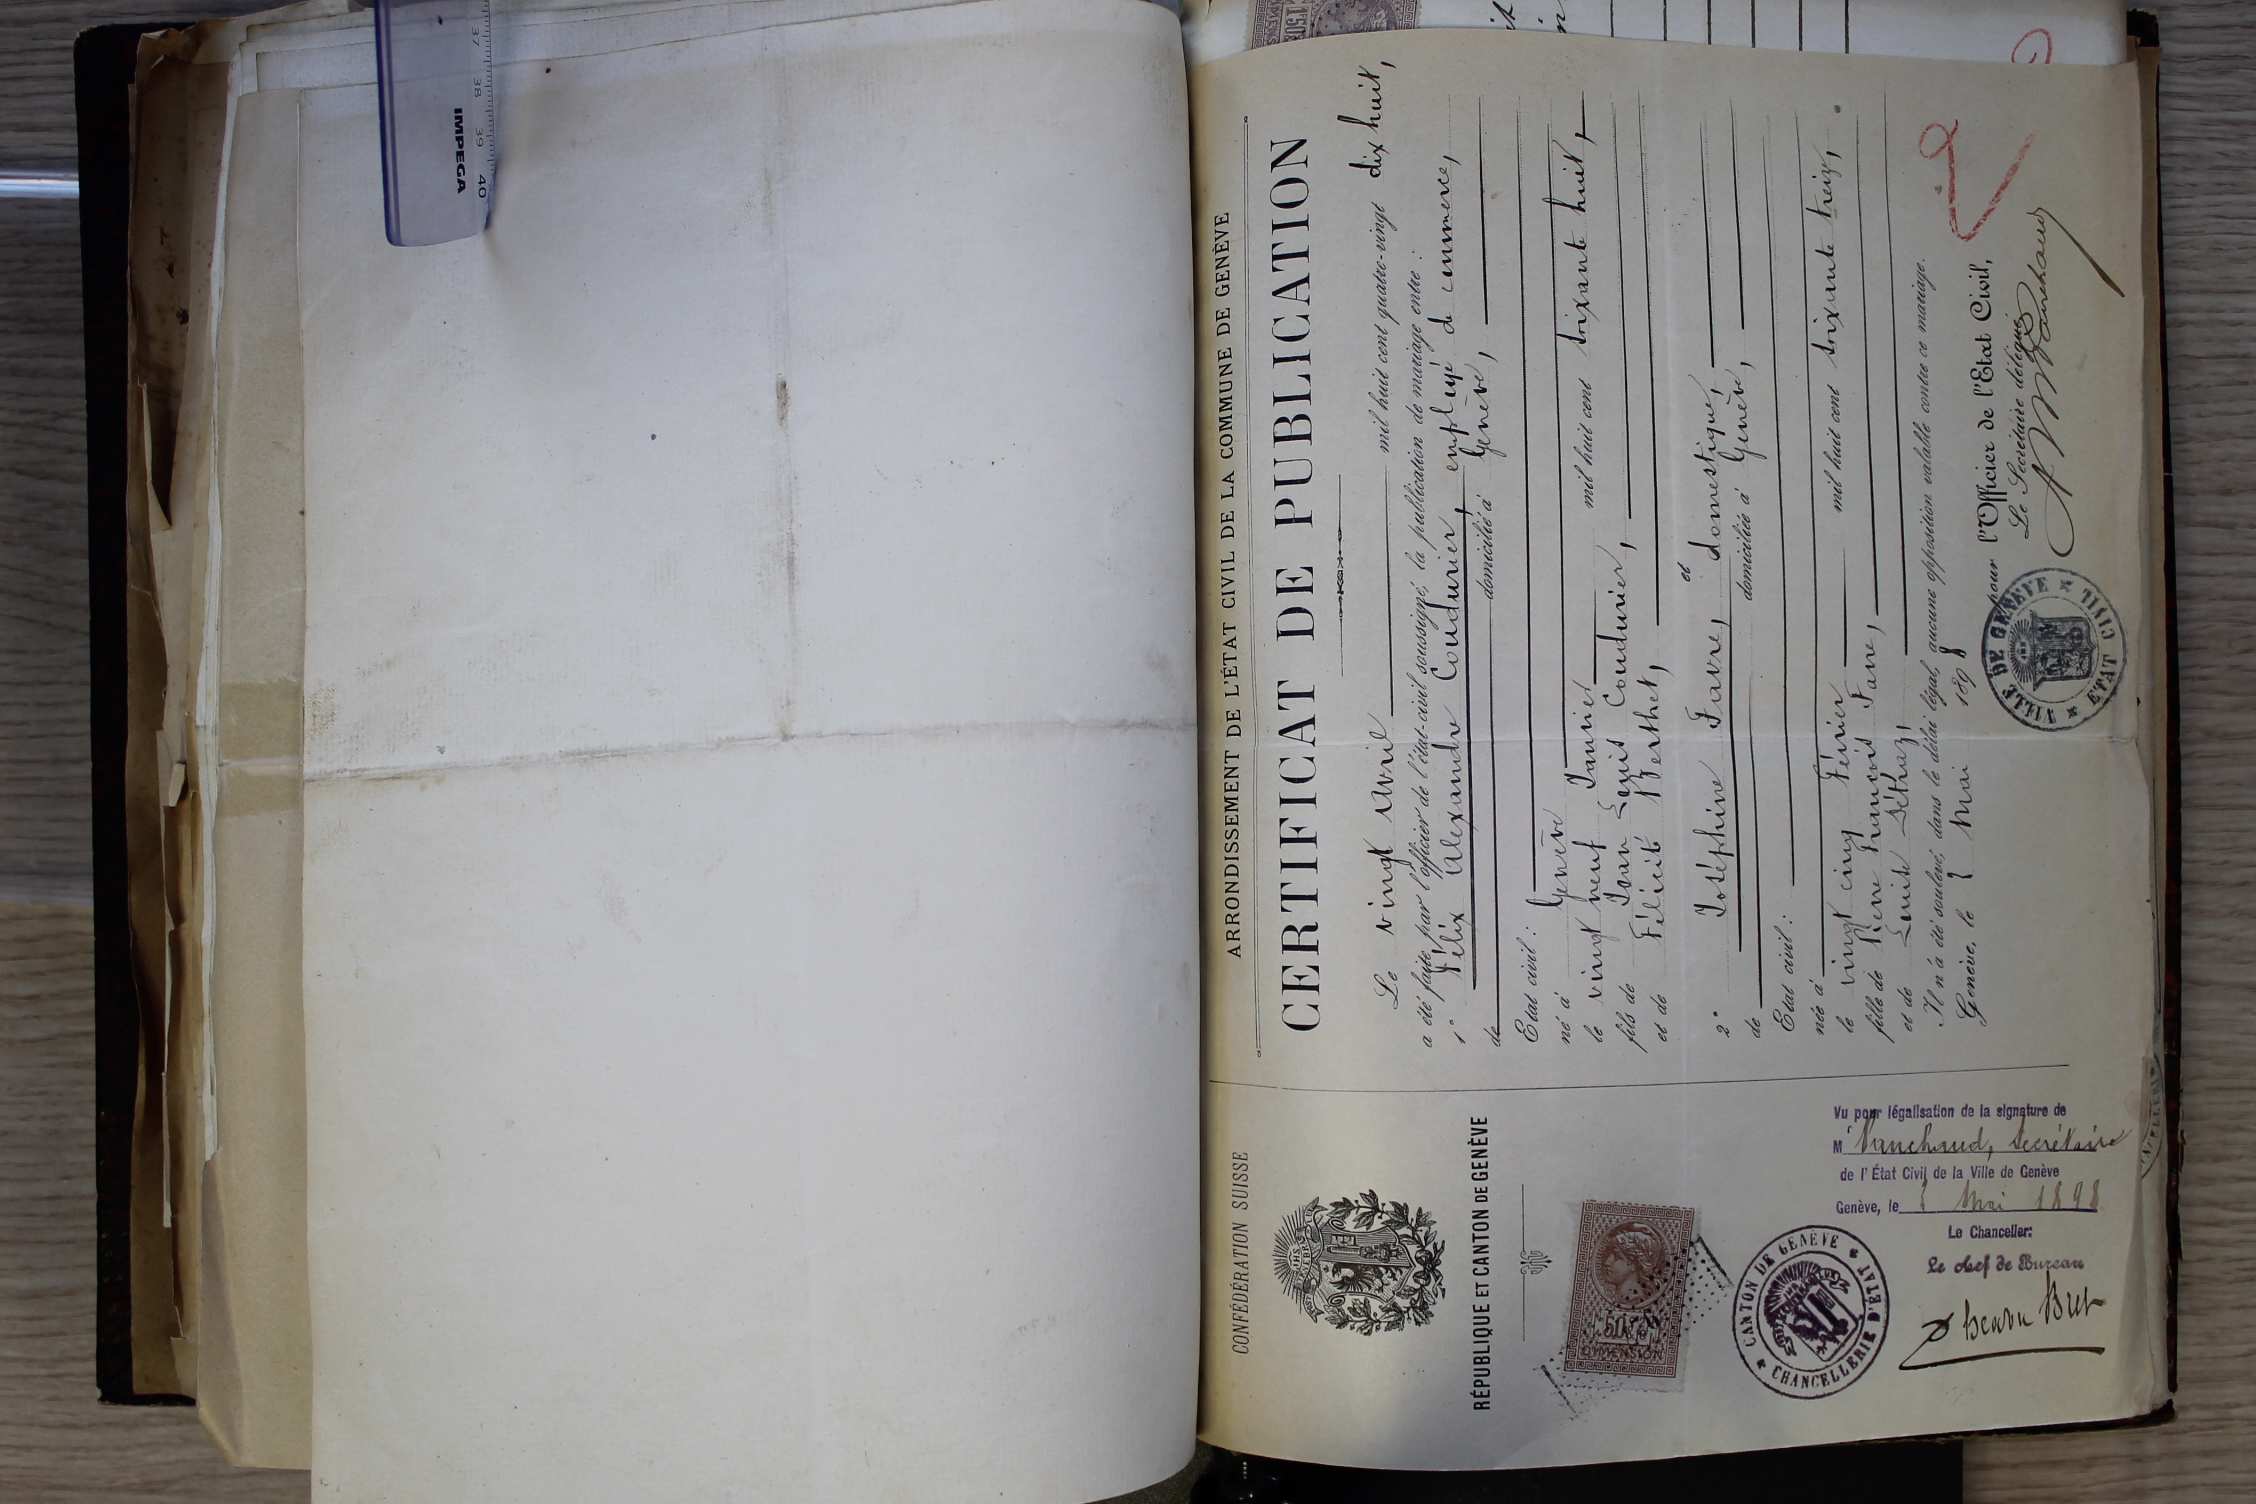 CONFÉDÉRATION SUISSE
RÉPUBLIQUE ET CANTON DE GENÈVE
50
DIMENSION
CANTON DE GENÈVE
CHANCELLERIE D'ÉTAT
Vu pour légalisation de la signature de
M Vanchaud, secrétaire
de l'État Civil de la Ville de Genève
Genève, le Mai 1898
Le Chancelier:
Le chef de Bureau
ARRONDISSEMENT DE L'ÉTAT CIVIL DE LA COMMUNE DE GENÈVE
CERTIFICAT DE PUBLICATION
Le vingt Avril mil huit cent quatre-vingt dix huit,
a été faite par l'officier de l'état-civil soussigné, la publication de mariage entre :
1° Félix Alexandre Coudurier, employé de commerce,
de domicilié à Genève,
Etat civil :
né à Genève
le vingt neuf Janvier mil huit cent soixante huit,
fils de Jean Louis Coudurier,
et de Félicité Berthet,
et
2° Joséphine Favre, domestique,
de domiciliée à Genève,
Etat civil :
née à
le vingt cinq Février mil huit cent soixante treize,
fille de Pierre François Favre,
et de Louise
Il n'a été soulevé, dans le délai légal, aucune opposition valable contre ce mariage.
Genève, le Mai 1898
pour l'Officier de l'Etat Civil,
Le Secrétaire délégué
Vanchaud
VILLE DE GENÈVE
ÉTAT CIVIL
IMPEGA
37 38 39 40